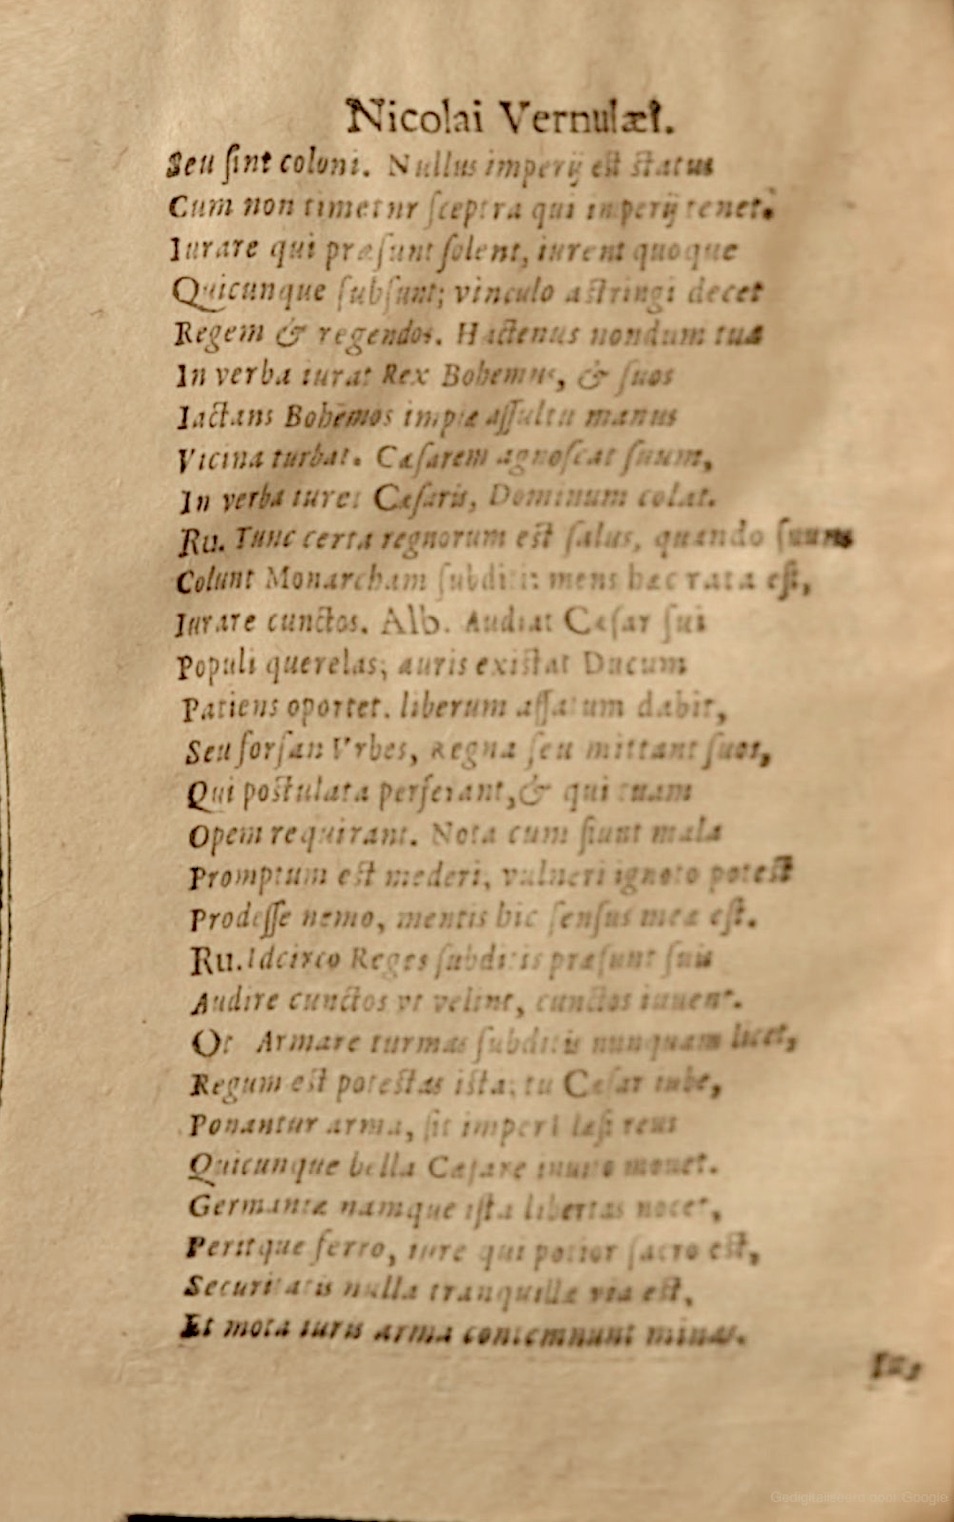 Nicolai Vernulæi.
Seu ſint coloni. Nullus imperij est status
Cum non timetur ſceptra qui imperij tenet.
Iurare qui præſunt ſolent, iurent quoque
Quicunque ſubſunt; vinculo astringi decet
Regem & regendos. Hactenus nondum tua
In verba iurat Rex Bohemus, & ſuos
Iactans Bohemos impia aſſultu manus
Vicina turbat. Cæſarem agnoſcat ſuum,
In verba iuret Cæſaris, Dominum colat.
Ru. Tunc certa regnorum est ſalus, quando ſuum
Colunt Monarcham ſubditi: mens hæc rata eſt,
Iurare cunctos. Alb. Audiat Cæſar ſui
Populi querelas, auris existat Ducum
Patiens oportet. liberum aſſatum dabit,
Seu forſan Vrbes, Regna ſeu mittant ſuos,
Qui postulata perferant, & qui tuam
Opem requirant. Nota cum fiunt mala
Promptum est mederi, vulneri ignoto potest
Prodeſſe nemo, mentis hic ſenſus meæ eſt.
Ru. Idcirco Reges ſubditis præſunt ſuis
Audire cunctos vt velint, cunctos iuuent.
Ot Armare turmas ſubditis nunquam licet,
Regum est potestas ista, tu Cæſar iube,
Ponantur arma, ſit imperI læſi reus
Quicunque bella Cæſare inuito mouet.
Germaniæ namque iſta libertas nocet,
Peritque ferro, iure qui potior ſacro est,
Securitatis nulla tranquillæ via est,
Et mota iuris arma contemnunt minas.